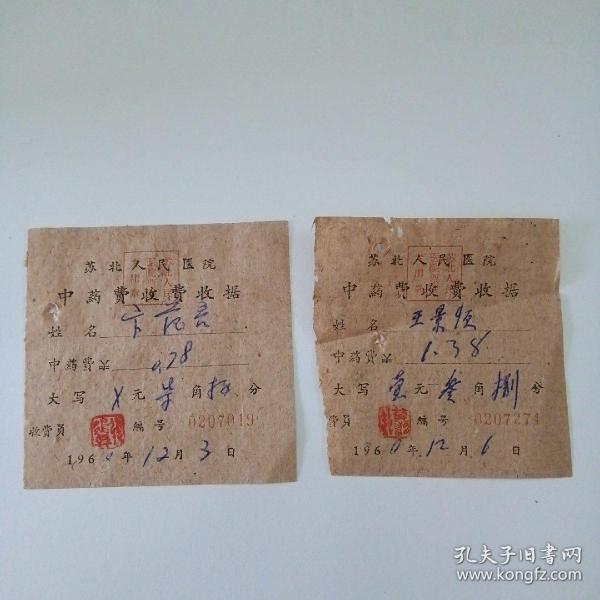 苏北人民医院
中药费收费收据
姓名
中药费六 0.78
大写 X元柒角捌分
收费员 编号 0207019
1960年12月3日
苏北人民医院
中药费收费收据
姓名 王景顺
中药费六 1.38
大写 壹元叁角捌分
费员 编号 0207274
1960年12月6日
孔夫子旧书网
www.kongfz.com